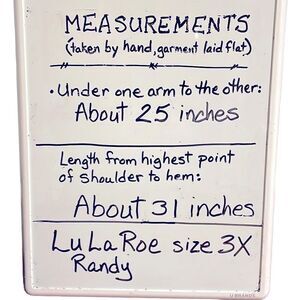 MEASUREMENTS
(taken by hand, garment laid flat)
• Under one arm to the other:
About 25 inches
Length from highest point
of shoulder to hem:
About 31 inches
LuLaRoe size 3X
Randy
U BRANDS